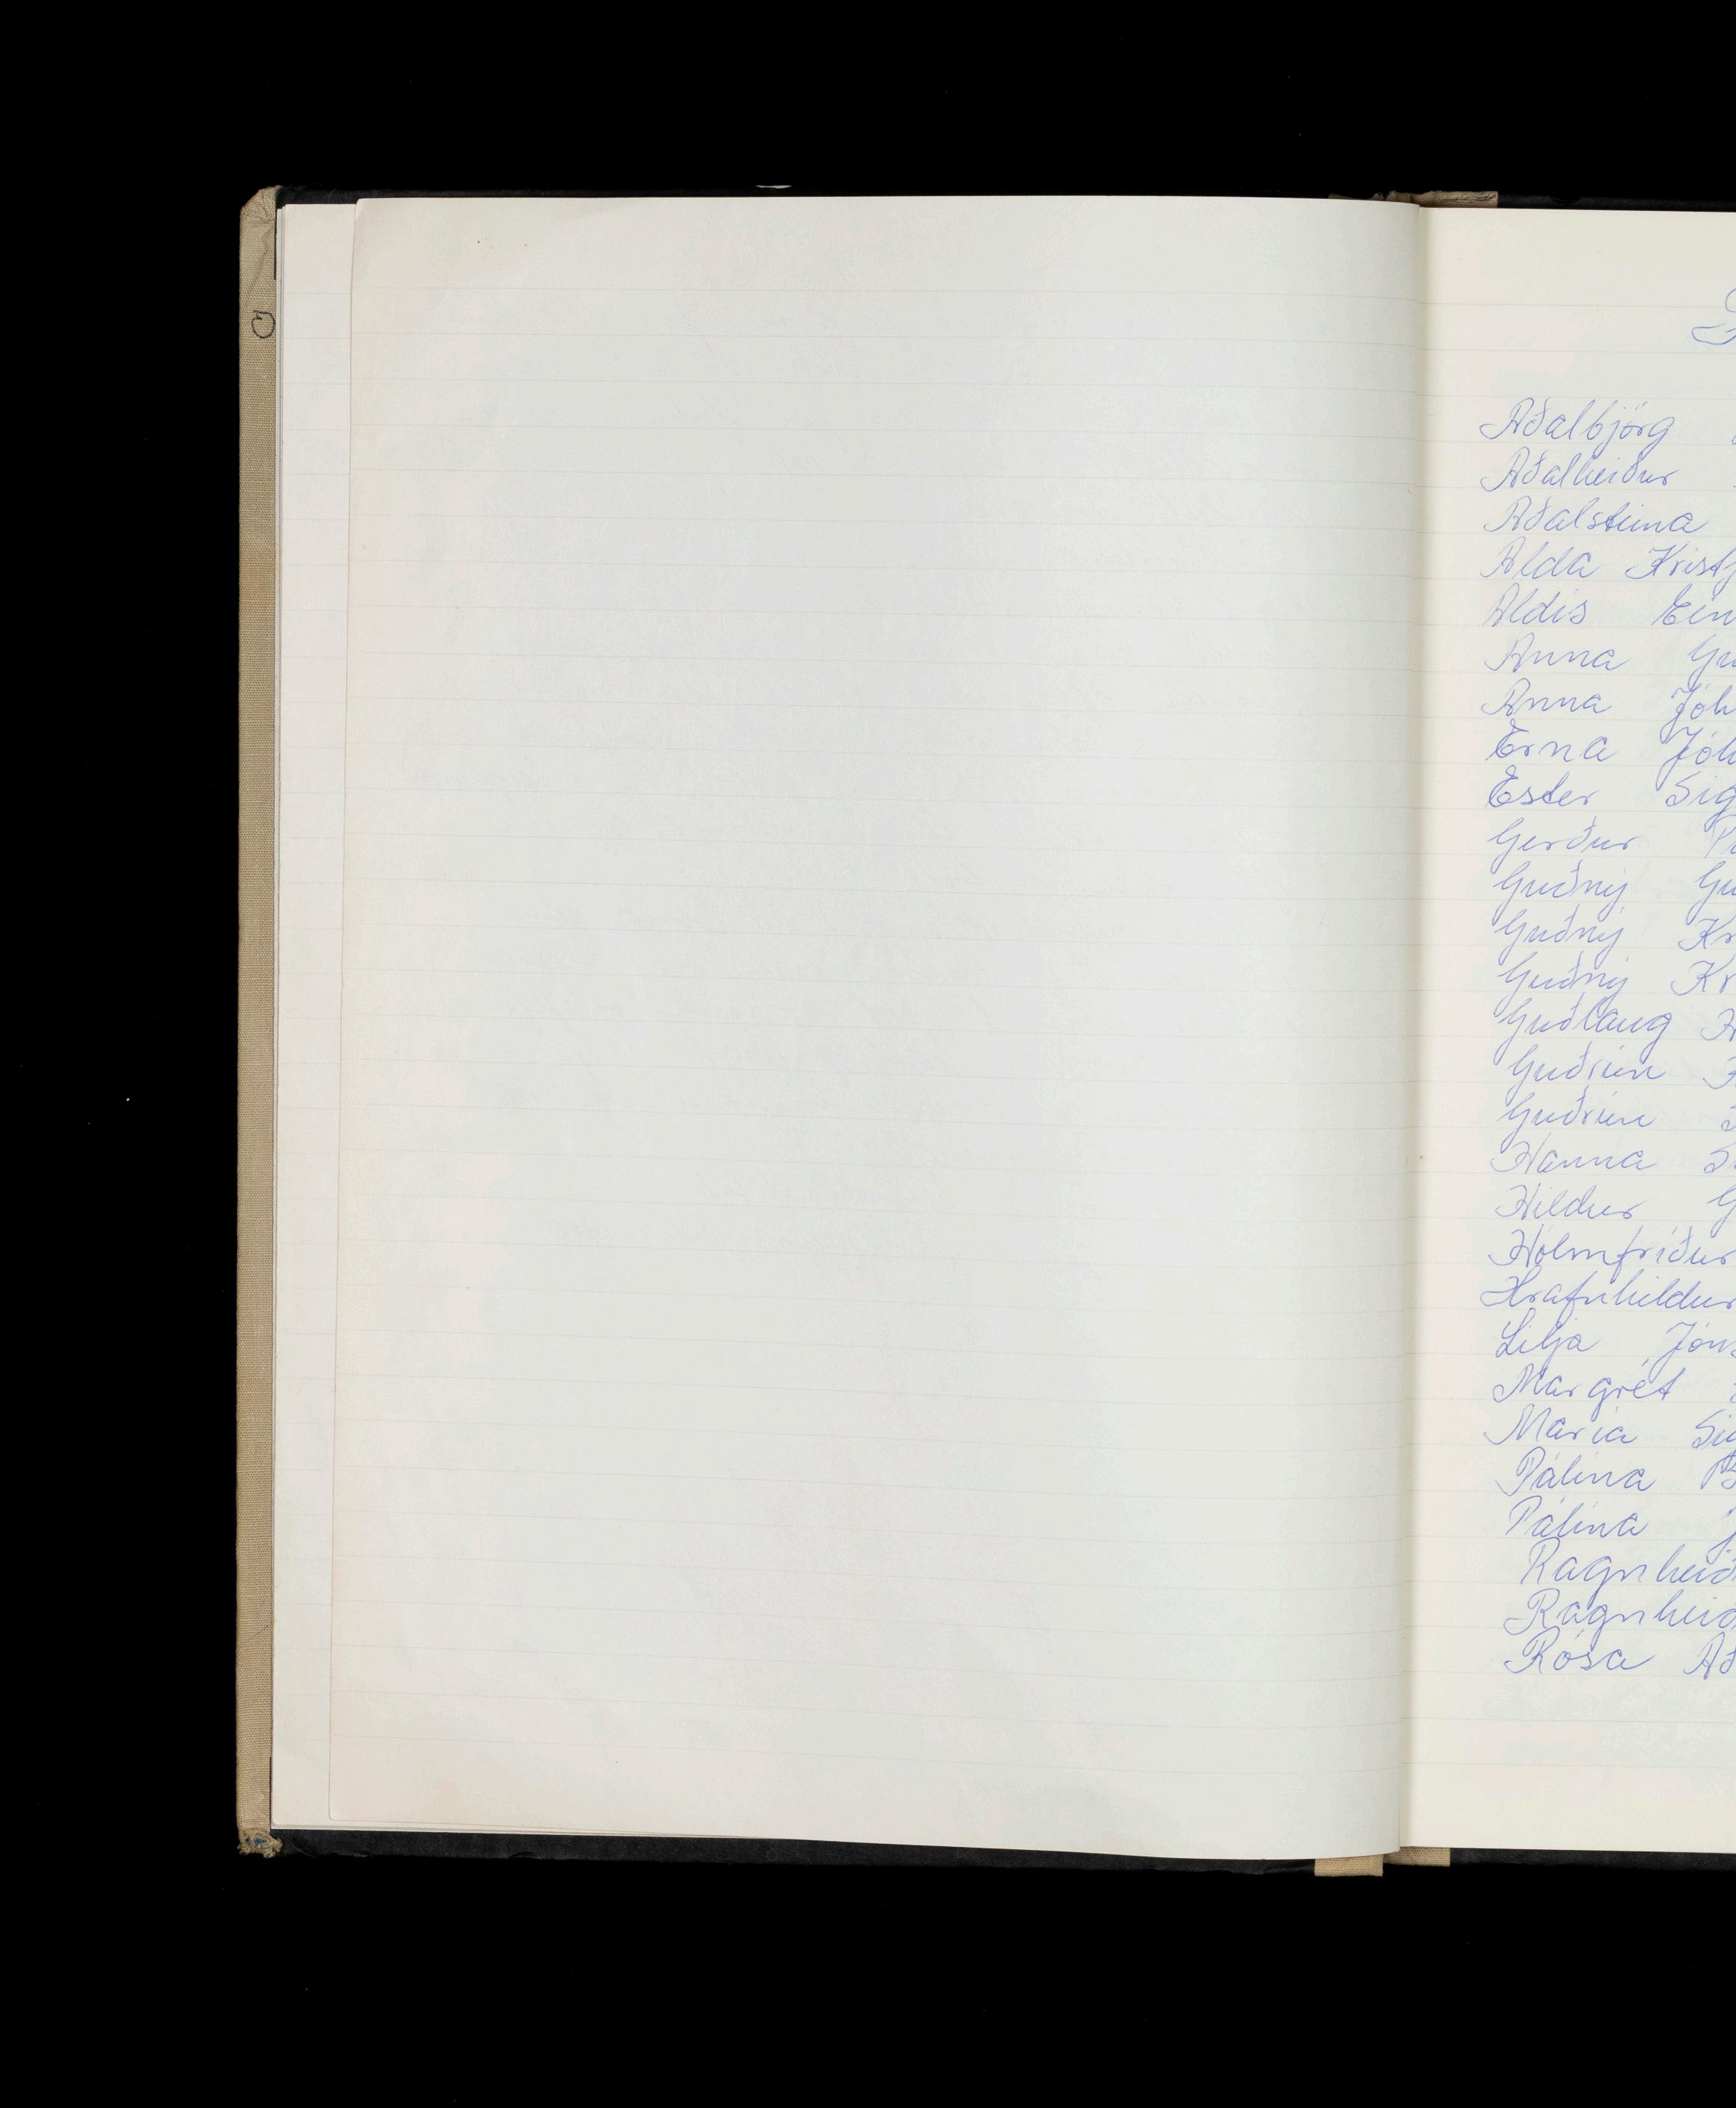 Aðalbjörg
Aðalheiður
Aðalsteina
Alda Kristj
Aldis Ein
Anna Gu
Anna Jóh
Erna Jóh
Ester Sig
Gerður
Guðný Gu
Guðný Kr
Guðný Kr
Guðlaug
Guðrún
Guðrún
Hanna
Hildur G
Hólmfríður
Hrafnhildur
Lilja Jóns
Margrét
Maria Sig
Pálína B
Pálína
Ragnheið
Ragnheið
Rósa Að